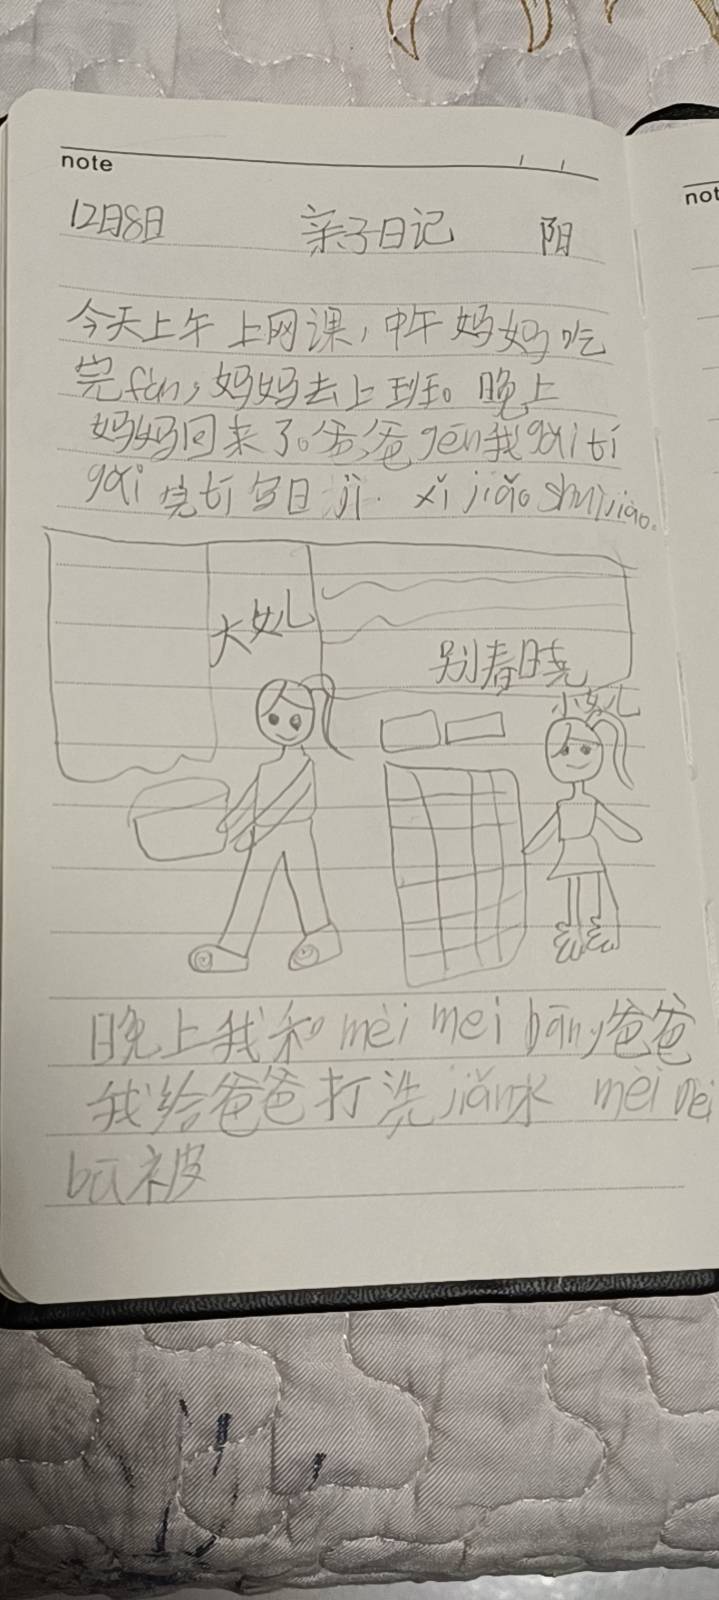 note
12日8日 亲子日记 阳
今天上午上网课，中午妈妈吃
完fàn，妈妈去上班。晚上
妈妈回来了。爸爸gēn我gǎi tí
gǎi完tí写日jì. xǐ jiǎo shuì jiào。
大女儿
别春晓
小女儿
晚上我和mèi mei bāng爸爸
我给爸爸打洗jiǎn水 mèi mei
被
not